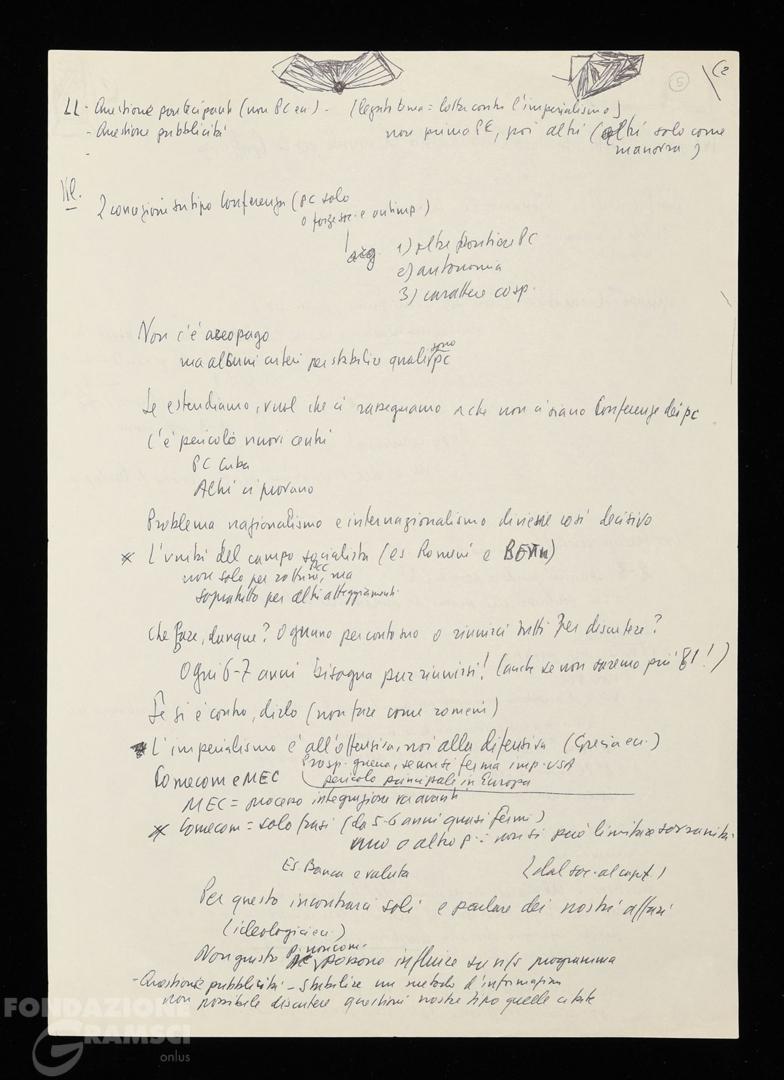 5
C2
LL - Questione partecipanti (non PC ecc.) - (legati tema = lotta contro l'imperialismo)
- Questione pubblicità
non prima PC, poi altri (altri solo come
manovra)
-
2 concezioni su tipo Conferenza (PC solo
o forze soc. e antimp.)
1) oltre frontiere PC
2) autonomia
3) carattere cosp.
Non c'è areopago
ma alcuni criteri per stabilire quali sono PC
Se estendiamo, vuol che ci rassegniamo a che non ci siano Conferenze dei pc
C'è pericolo nuovi centri
PC Cuba
Altri ci provano
Problema nazionalismo e internazionalismo diviene così decisivo
* L'unità del campo socialista (es Romeni e
non solo per rottura PCC, ma
soprattutto per altri atteggiamenti
Che fare, dunque? Ognuno per conto suo o riunirci tutti per discutere?
Ogni 6-7 anni bisogna pur riunirsi! (anche se non saremo più 81!)
Se si è contro, dirlo (non fare come romeni)
* L'imperialismo è all'offensiva, noi alla difensiva (Grecia ecc.)
Prosp. guerra, se non si ferma imp. USA
Comecom e MEC
pericolo principale in Europa
MEC = processo integrazione va avanti
* Comecom = solo frasi (da 5-6 anni quasi fermi)
uno o altro p. = non si può limitare sovranità.
Es Banca e valuta
(dal soc. al capit.)
Per questo incontrarci soli e parlare dei nostri affari
(ideologici ecc.)
Non giusto P. non com. possono influire su ns programma
- Questione pubblicità - stabilire un metodo d'information
non possibile discutere questioni nostre tipo quelle citate
FONDAZIONE
GRAMSCI
onlus